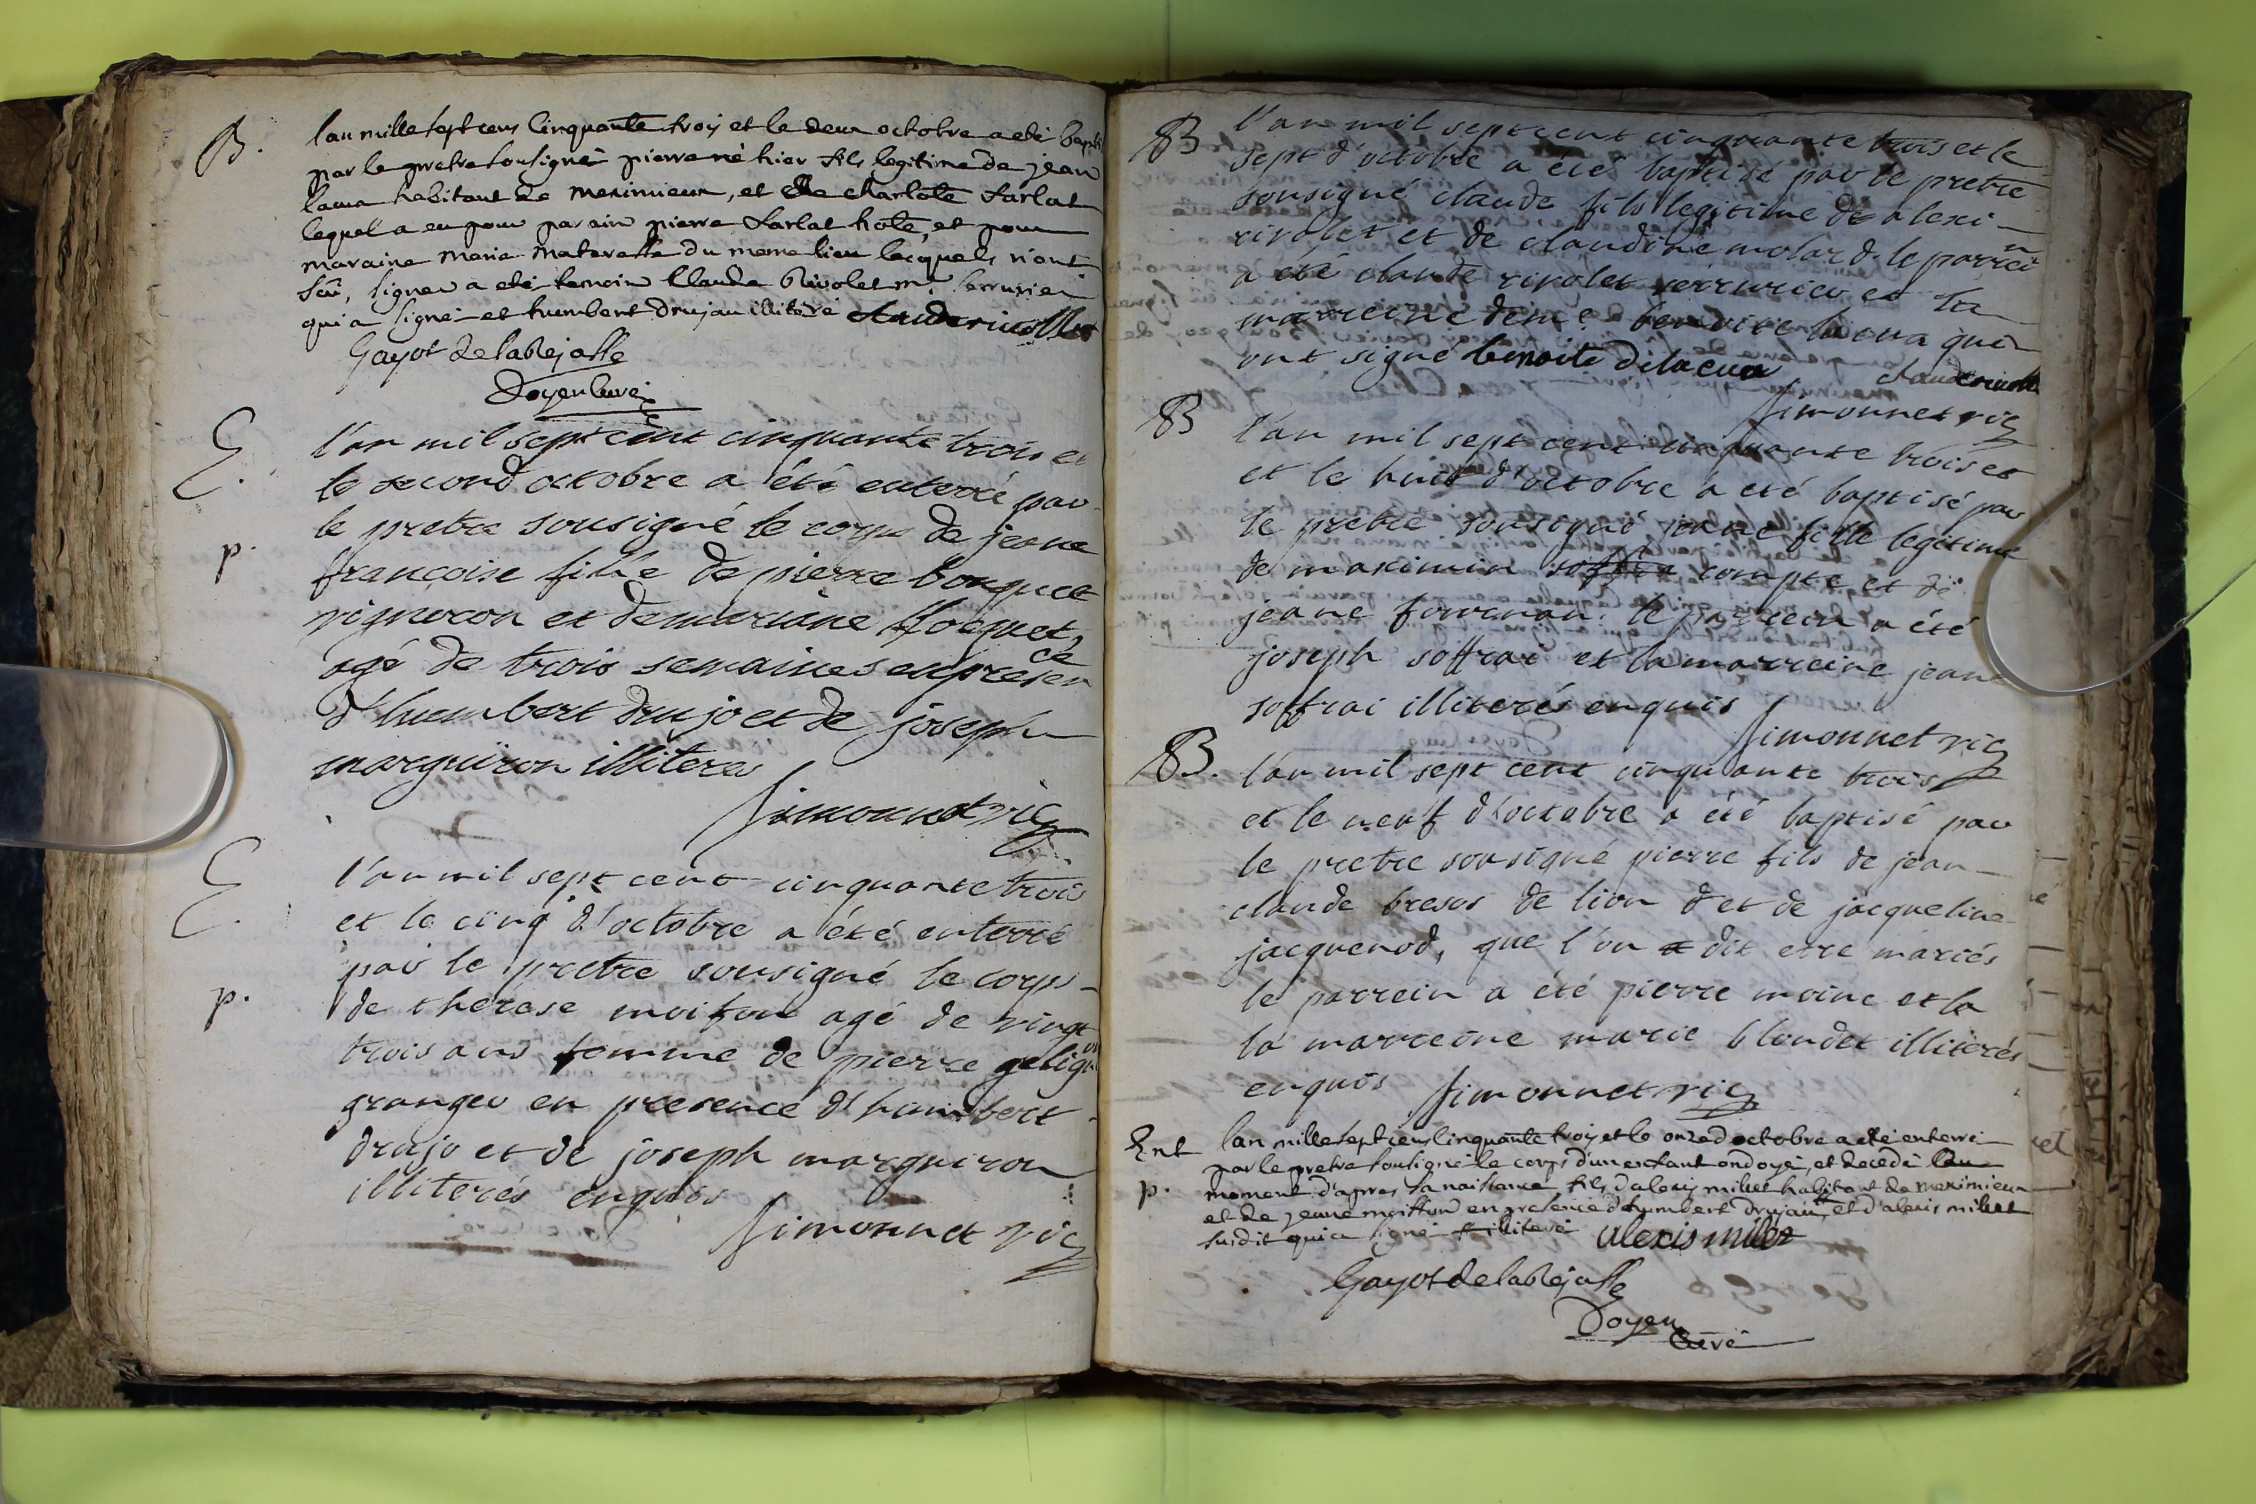 B.
lan mille sept cens Cinquante troy et le deux octobre a eté bapti
par le pretre sousigné pierre né hier fils legitime de jean
habitant de meximieux, et de charlote sarlat
lequel a eu pour parain pierre sarlat hote, et pour
maraine marie du meme lieu lesquels n'ont
sçu, signer a eté temoin Claude Rivolet m. serrurier
qui a signé et humbert drujau illiteré Clauderivollet
Gayot de la Rejasse
Doyen Curé
E.
l'an mil sept cent cinquante trois et
le second octobre a été enterré par
p.
le pretre sousigné le corps de jeane
françoise fille de pierre bouquet
vigneron et de mariane Jocquet,
agé de trois semaines en presen
ce
d'huembert drujo et de joseph
marguiron illiteres
Simonnet vic
E.
l'an mil sept cent cinquante trois
et le cinq d'octobre a été enterré
par le pretre sousigné le corps
p.
de therese moifon agé de vingt
trois ans femme de pierre
granger en presence d'humbert
drujo et de joseph marguiron
illiterés enquis
Simonnet vic
B
l'an mil sept cent cinquante trois et le
sept d'octobre a été baptisé par le pretre
sousigné claude fils legitime de alexi
rivolet et de claudine molard. le parrei
n
a été claude rivolet serrurier et la
marreine dem.e benoite lacua qui
ont signé benoite dilacua clauderivolle
Simonnet vic
B
l'an mil sept cent cinquante trois et
et le huit d'octobre a été baptisé par
le pretre sousigné jeane fille legitime
de maximin soffra compte et de
jeane fournon. le parrein a été
joseph soffrai et la marreine jeane
soffrai illiterés enquis
Simonnet vic
B.
l'an mil sept cent cinquante trois
et le neuf d'octobre a été baptisé par
le pretre sousigné pierre fils de jean
claude bresos de lion d et de jacqueline
jacquenod, que l'on a dit etre mariés
le parrein a été pierre moine et la
la marreine marie blondet illiterés
enquis Simonnet vic
Ent
lan mille sept cens Cinquante troy et le onze doctobre a eté enterré
par le pretre sousigné le corps d'un enfant ondoyé, et decedé
p.
moment d'apres sa naissance fils d'alexis millet habitant de meximieux
et de jeanne moiffon en presence d'humbert drujau, et d'alexis millet
susdit qui a signé illiteré alexis millet
Gayot de la Rejasse
Doyen
Curé